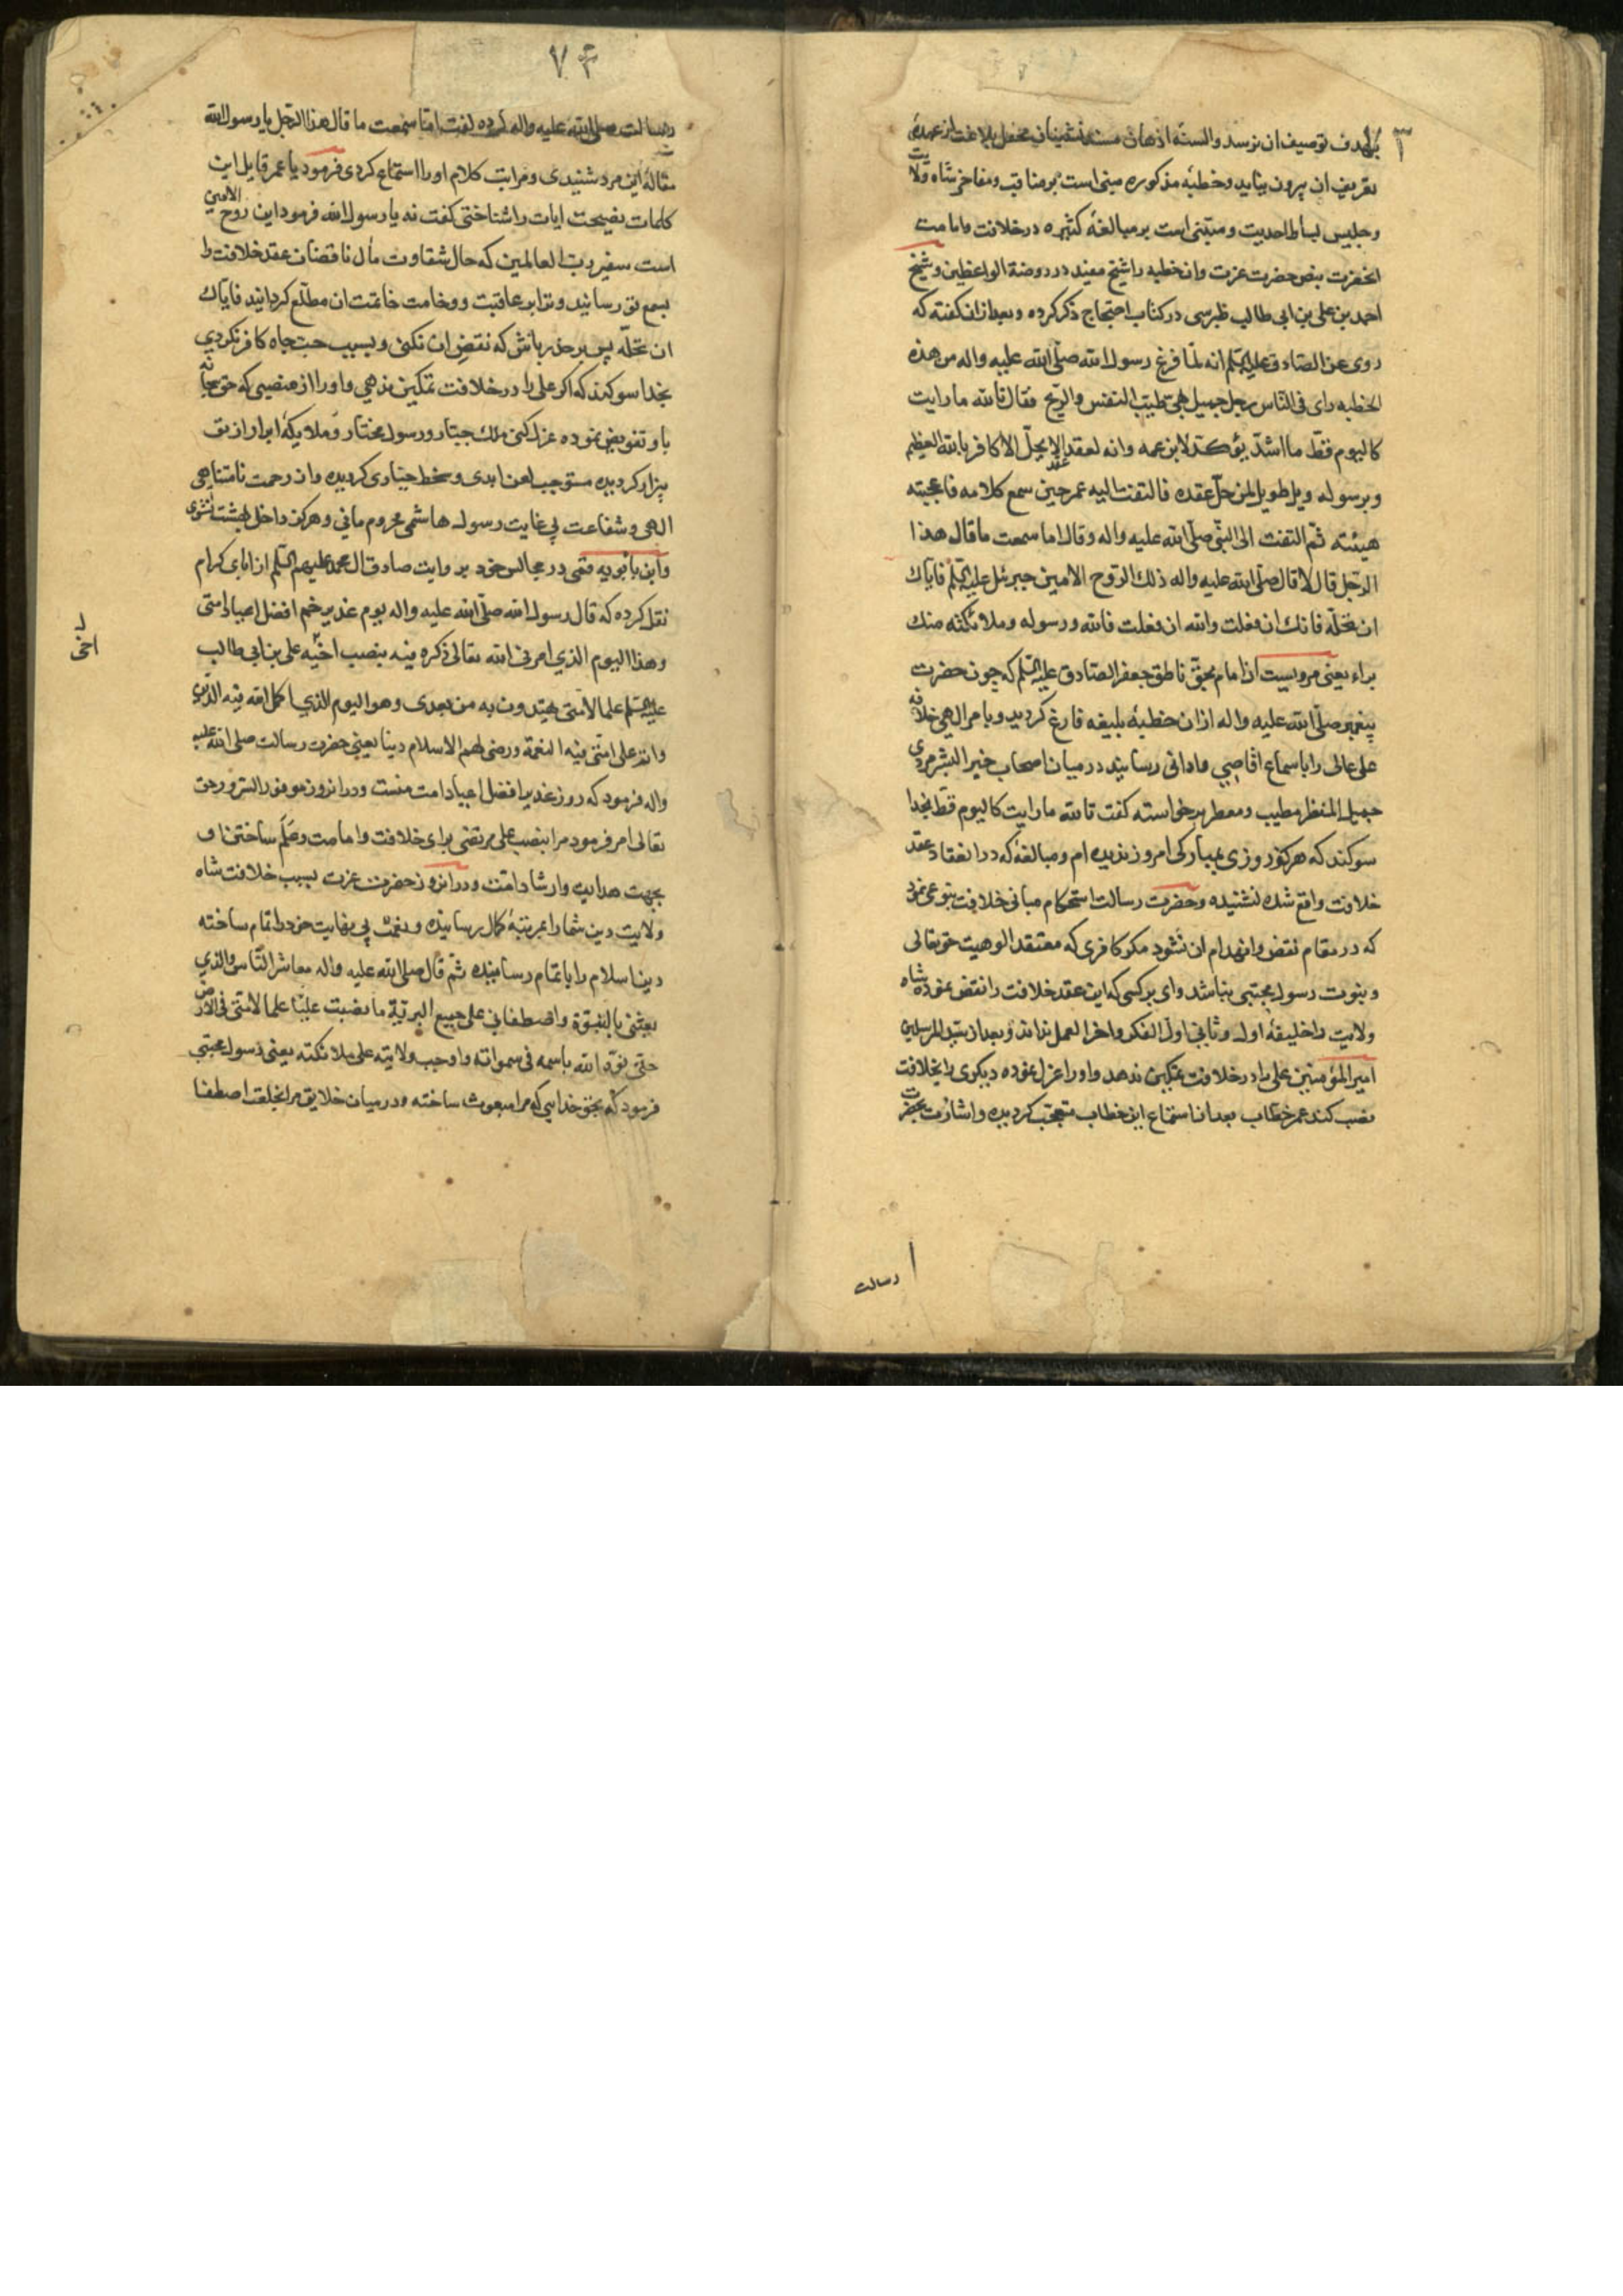 بهدف توصیف ان نرسد والسنه اذهان مسند نشینان محفل بلاغت از عهدهٔ
تعریف ان بیرون نیاید وخطبه مذکوره مبنی است بر مناقب ومفاخر شاه ولایت
وجلیس بساط احدیت ومبتنی است بر مبالغهٔ کثیره در خلافت وامامت
انحضرت بنص حضرت عزت وان خطبه را شیخ مفید در روضة الواعظین وشیخ
احمد بن علی بن ابی طالب طبرسی در کتاب احتجاج ذکر کرده وبعد از ان کفته که
روی عن الصادق علیه السلم انه لما فرغ رسول الله صلی الله علیه واله من هذه
الخطبه رای فی الناس رجل جمیل بهی طیب النفس والریح فقال تالله ما رایت
کالیوم قط ما اشد یؤکد لابن عمه وانه لعقد عقدا لا یحل الا کافر بالله العظیم
وبرسوله ویل طویل لمن حل عقده فالتفت الیه عمر حین سمع کلامه فاعجبته
هیئته ثم التفت الی النبی صلی الله علیه واله وقال اما سمعت ما قال هذا
الرجل قال لا قال صلی الله علیه واله ذلک الروح الامین جبرئل علیه السلم فایاک
ان تحله فانک ان فعلت والله ان فعلت فالله ورسوله وملائکته منک
براء یعنی مرویست از امام بحق ناطق جعفر الصادق علیه السلم که چون حضرت
پیغمبر صلی الله علیه واله از ان خطبهٔ بلیغه فارغ کردید وبامر الهی خلافة
علی عالی را باسماع اقاصی وادانی رسانید در میان اصحاب خیر البشر مردی
جمیل المنظر مطیب ومعطر برخواسته کفت تالله ما رایت کالیوم قط بخدا
سوکند که هرکز روزی بمبارکی امروز ندیده ام ومبالغهٔ که در انعقاد عقد
خلافت واقع شده نشنیده وحضرت رسالت استحکام مبانی خلافت بنوعی نمود
که در مقام نقض وانهدام ان نشود مکر کافری که معتقد الوهیت حق تعالی
وبنوت رسول مجتبی نباشد وای بر کسی که این عقد خلافت را نقض نموده شاه
ولایت را خلیفهٔ اول وثانی اول الفکر واخر العمل نداند وبعد از سید المرسلین
امیر المؤمنین علی را در خلافت تمکین ندهد واو را عزل نموده دیکری را بخلافت
نصب کند عمر خطاب بعد از استماع این خطاب متعجب کردیده واشارت بحضرت
رسالت
۷۴
رسالت صلی الله علیه واله کرده کفت اما سمعت ما قال هذا الرجل یا رسول الله
مقالهٔ این مرد شنیدی وغرابت کلام او را استماع کردی فرمود یا عمر قایل این
کلمات نصیحت ایات را شناختی کفت نه یا رسول الله فرمود این روح الامین
است سفیر رب العالمین که حال شقاوت مأل ناقضان عقد خلافت را
بسمع تو رسانید وترا بر عاقبت ووخامت خاتمت ان مطلع کردانید فایاک
ان تحله پس بر حذر باش که نقض ان نکنی وبسبب حب جاه کافر نکردی
بخدا سوکند که اکر علی را در خلافت تمکین ندهی واو را از منصبی که حق سبحانه
باو تفویض نموده عزل کنی ملک جبار ورسول مختار وملایکهٔ ابرار از تو
بیزار کردیده مستوجب لعن ابدی وسخط جباری کردیده واز رحمت نامتناهی
الهی وشفاعت بی غایت رسول هاشمی محروم مانی وهرکز داخل بهشت نشوی
وابن بابویه قمی در مجالس خود بروایت صادق ال محمد علیهم السلم از ابای کرام
نقل کرده که قال رسول الله صلی الله علیه واله یوم غدیر خم افضل اعیاد امتی
وهذا الیوم الذی امرنی الله تعالی ذکره فیه بنصب اخیه علی بن ابی طالب
اخی
علیه السلم علما لامتی یهتدون به من بعدی وهو الیوم الذی اکمل الله فیه الدین
واتم علی امتی فیه النعمة ورضی لهم الاسلام دینا یعنی حضرت رسالت صلی الله علیه
واله فرمود که روز غدیر افضل اعیاد امت منست ودر انروز موفور السرور حق
تعالی امر فرمود مرا بنصب علی مرتضی برای خلافت وامامت وعلم ساختن او
بجهت هدایت وارشاد امت ودر انروز حضرت عزت بسبب خلافت شاه
ولایت دین شما را بمرتبهٔ کمال رسانیده ونعمت بی نهایت خود را تمام ساخته
دین اسلام را باتمام رسانیده ثم قال صلی الله علیه واله معاشر الناس والذی
بعثنی بالنبوة واصطفانی علی جمیع البریة ما نصبت علیا علما لامتی فی الارض
حتی نوه الله باسمه فی سمواته واوجب ولایته علی ملائکته یعنی رسول مجتبی
فرمود که بحق خدایی که مرا مبعوث ساخته ودر میان خلایق مرا بخلعت اصطفا